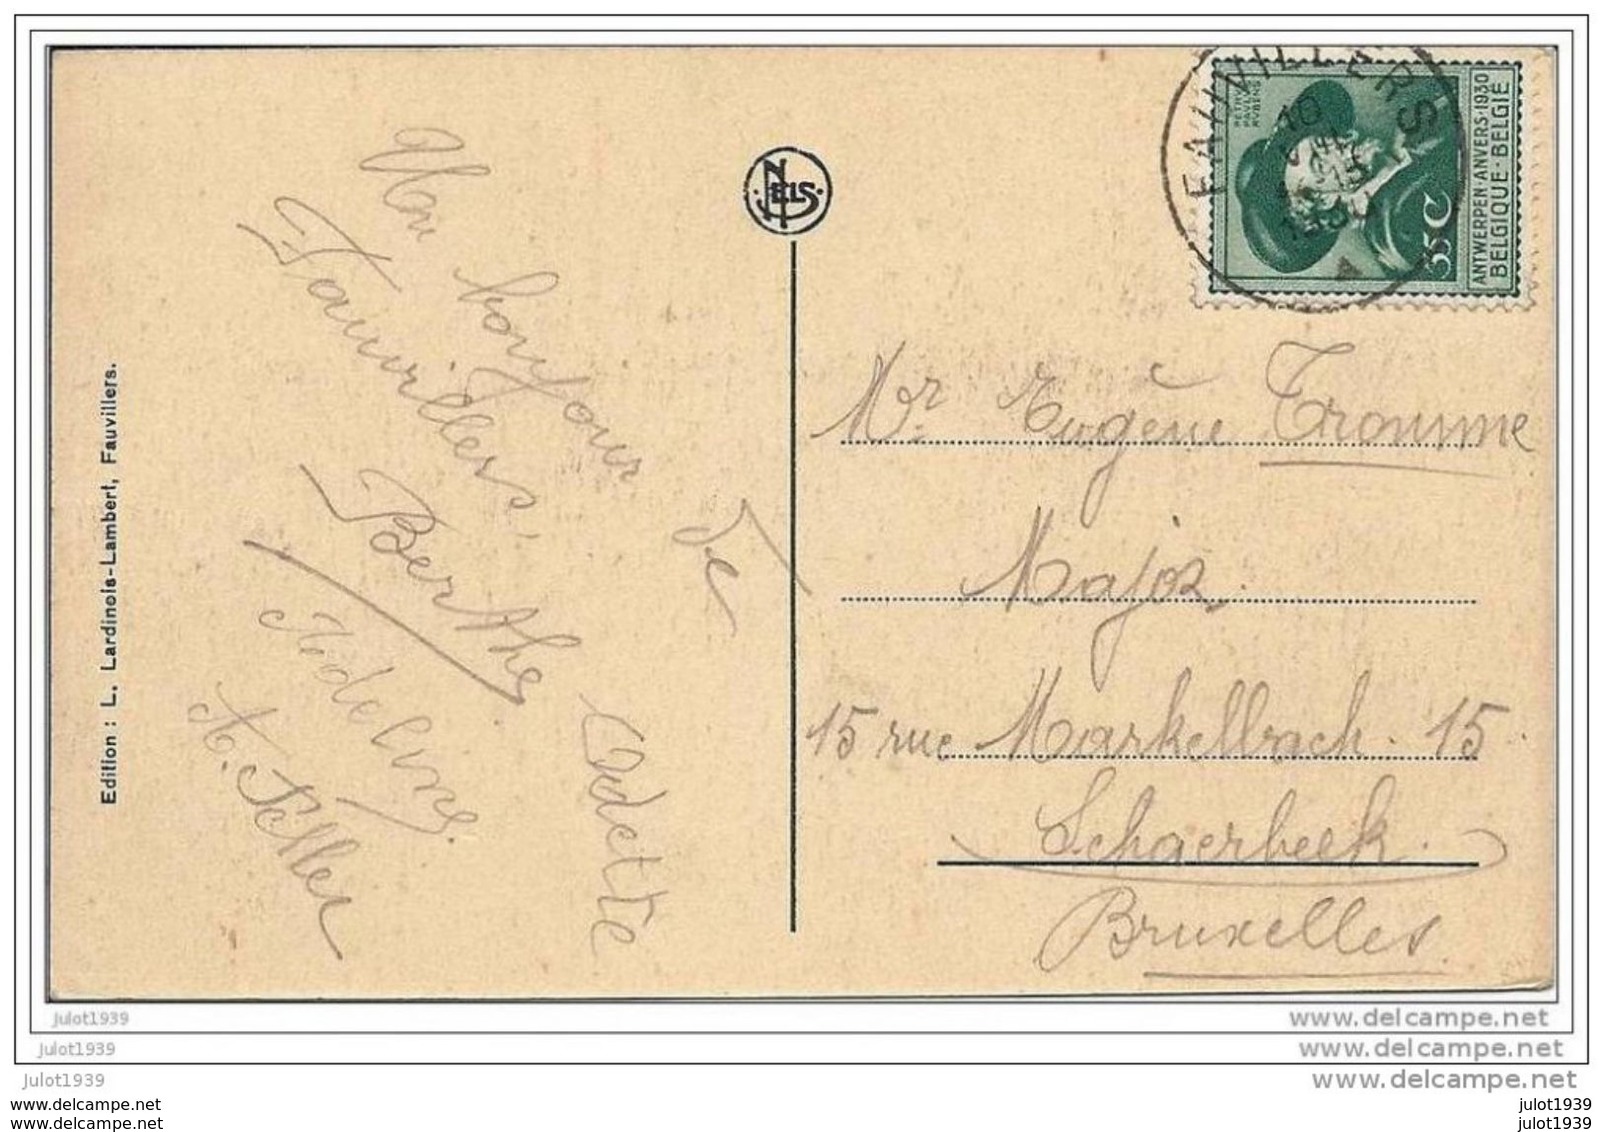 Un bonjour de
Fauvillers,
Berthe
Odette
Adeline.
Edition : L. Lardinois-Lambert, Fauvillers.
NELS
FAUVILLERS
10
PETRVS
PAVLVS
RVBENS
35C
ANTWERPEN·ANVERS·1930
BELGIQUE·BELGIË
Mr Eugène Tromme
Major.
15 rue Markelbach. 15.
Schaerbeek.
Bruxelles.
julot1939
www.delcampe.net
julot1939
www.delcampe.net
julot1939
www.delcampe.net
www.delcampe.com
julot1939
www.delcampe.com
julot1939